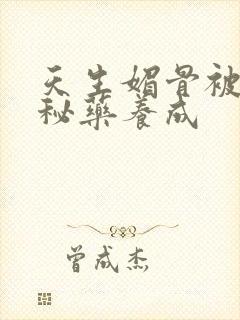 天生媚骨被
秘药养成
曾成杰